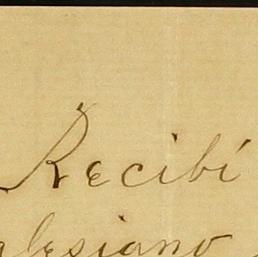 Recibí
glesiano